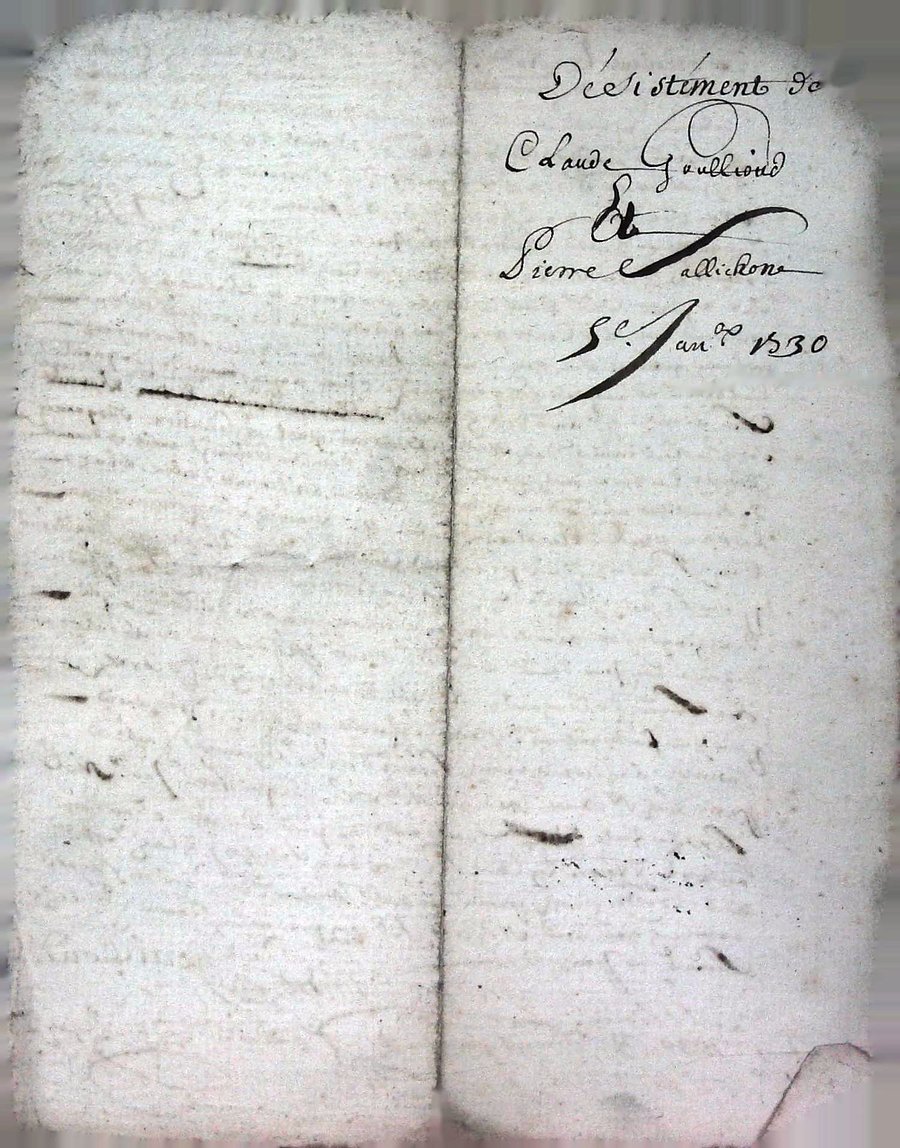 Désistément de
Claude Goullioud
Et
Pierre Sallichone
5e. Janer 1730